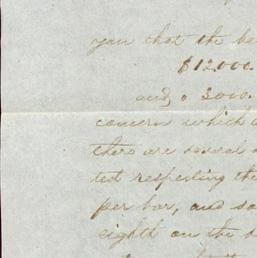 you that the be
$12000.
and, a 3000.
concern which
there are several
ted respecting the
per bar, and so
eighth on the